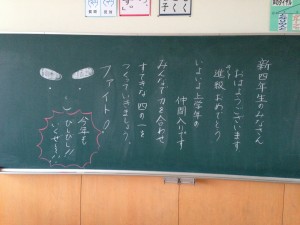 新四年生のみなさん
おはようございます
進級おめでとう
いよいよ上学年の
仲間入りです
みんなで力を合わせ
すてきな四の一を
つくっていきましょう。
ファイト
今年も
びしびし
いくぜ〜!!